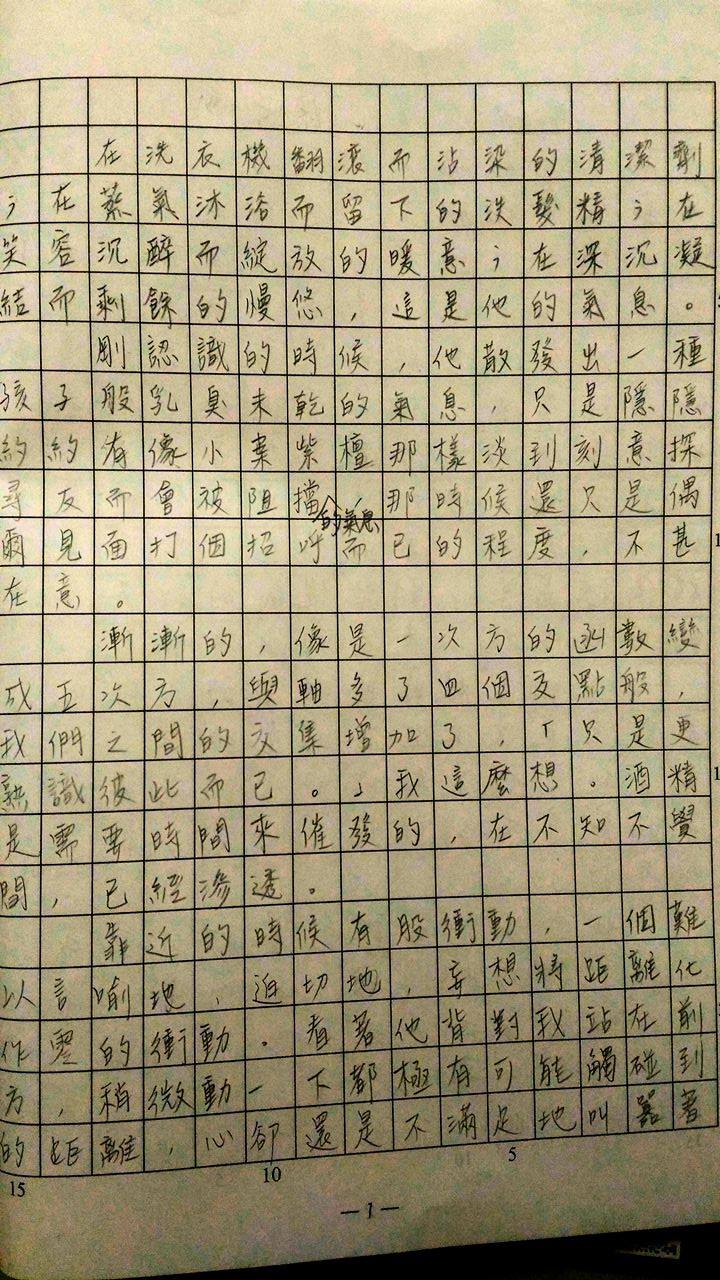 在洗衣機翻滾而沾染的清潔劑
；在蒸氣沐浴而留下的洗髮精；在
笑容沉醉而綻放的暖意；在深沉凝
結而剩餘的慢悠，這是他的氣息。
剛認識的時候，他散發出一種
孩子般乳臭未乾的氣息，只是隱隱
約約有像小葉紫檀那樣淡到刻意探
尋反而會被阻擋的氣息，那時候還只是偶
爾見面打個招呼而已的程度，不甚
在意。
漸漸的，像是一次方的函數變
成五次方，與軸多了四個交點般，
我們之間的交集增加了，「只是更
熟識彼此而已。」我這麼想。酒精
是需要時間來催發的，在不知不覺
間，已經滲透。
靠近的時候有股衝動，一個難
以言喻地，迫切地，妄想將距離化
作零的衝動。看著他背對我站在前
方，稍微動一下都極有可能觸碰到
的距離，心卻還是不滿足地叫囂著
15
10
5
—1—